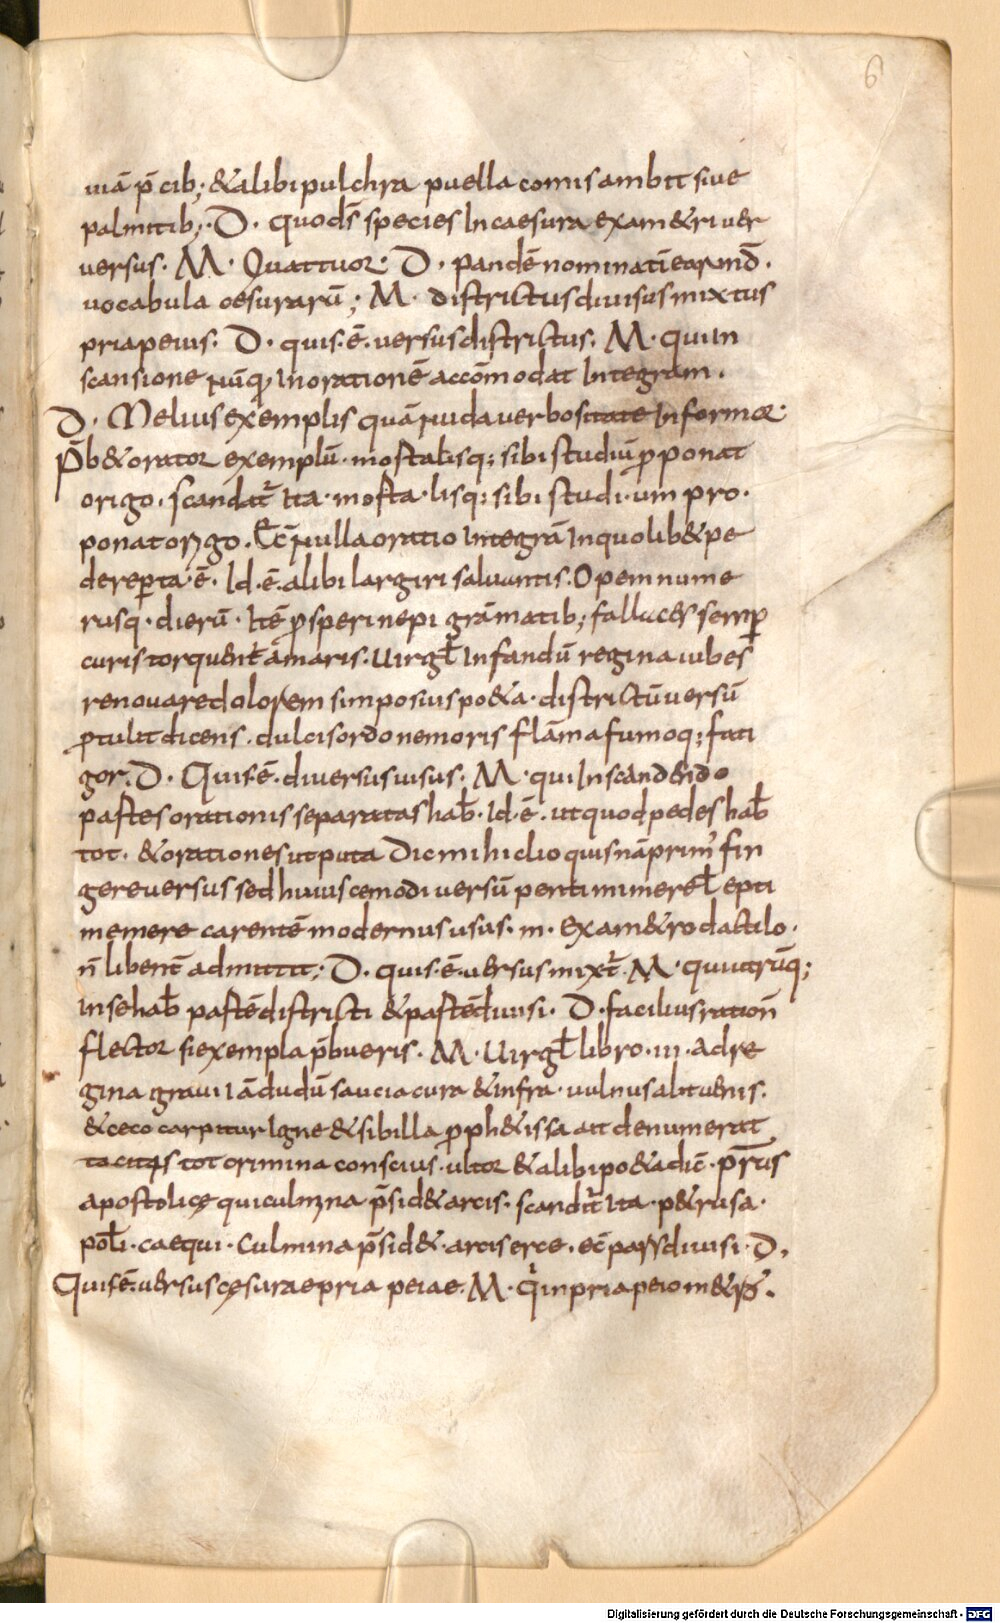 6
uiā p̄cib; & alibi pulchra puella comis ambit siue
palmitib;. D. quods̄ species In caesura exam&ri uer
uersus. M. Quattuor. D. pandē nominatī earundō.
uocabula cesurarū; M. districtus diuisus mixtus
priapeius. D. quis. ē. uersus districtus. M. qui In
scansione nūq; In oratione accōmodat Integram.
D. Melius exemplis quā nuda uerbositate Informor
P̄b& orator exemplū. mostalisq; sibi studiū ꝓponat
origo. scandat̄ Ita. mosta. lisq; sibi studi. um pro.
ponat origo. Ecc̄ nulla oratio Integrā In quolib& pe
de reperta. ē. Id. ē. alibi largiri saluantis. Opem nume
rusq. dierū. Itē ꝓsperi nepigrāmatib; fallaces semꝑ
curis torquent āmaris. Uirgł Infandū regina iubes
renouare dolorem simposius po&a. districtū uersū
ꝓtulit dicens. dulcis ordo nemoris flāma fumoq; fati
gor. D. Quis. ē. diuersus uisus. M. qui In scandendo
partes orationis separatas hab̄. Id. ē. ut quod pedes hab̄
tot. & orationes ut puta Dic mihi clio quisnā prim' fin
gere uersus sed huiuscemodi uersū pentimimereł epti
memere carentē modernus usus. in. exam&ro dactilo.
n̄ libent̄ admittit; D. quis. ē. uersus mixt̄. M. qui utrūq;
In se hab̄ partē districti & partē diuisi. D. facilius ration̄
flector si exempla p̄bueris. M. Uirgł libro. iii. Adre
gina graui Iā dudū saucia cura & infra. uulnus alit uenis.
& ceco carpitur Igne & sibilla ꝓph&issa ait denumerat
tacitas tot crimina conscius. ultor & alibi po&a dic̄. p&rus
apostolicę qui culmina p̄sid& arcis. scandit̄ Ita. p&rus a.
połi. cae qui. culmina p̄sid&. arcis ecce. ec̄ pars diuisi. D.
Quis. ē. uersus cęsurae pria peiae. M. q̇ in priapeio m&ro.
Digitalisierung gefördert durch die Deutsche Forschungsgemeinschaft - DFG